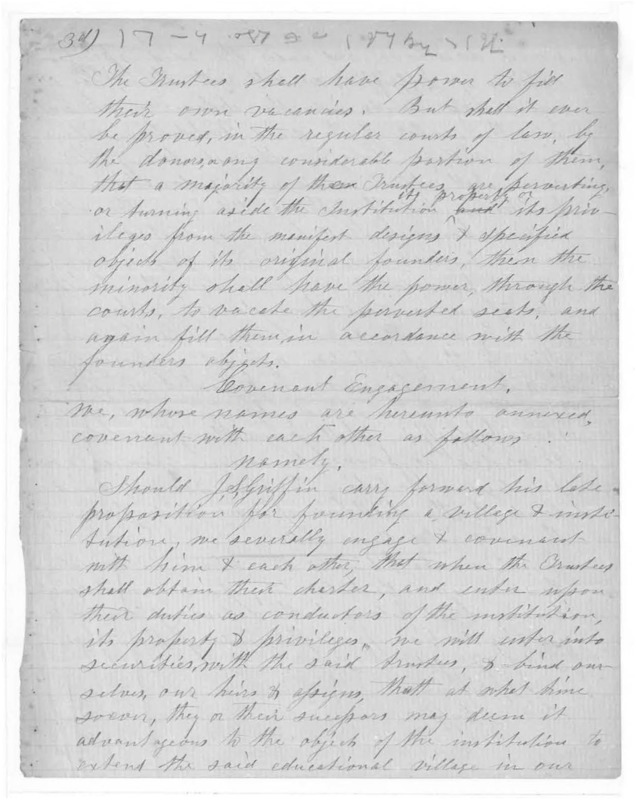 3d)
The Trustees shall have power to fill
their own vacancies. But shall it ever
be proved, in the regular courts of law, by
the donors, any considerable portion of them,
that a majority of the Trustees are perverting,
or turning aside the Institution its property or its priv-
ileges from the manifest designs & specified
objects of its original founders, then the
minority shall have the power, through the
courts, to vacate the perverted seats, and
again fill them, in accordance with the
founders objects.
Covenant Engagement.
We, whose names are hereunto annexed,
covenant with each other as follows
namely.
Should J S Griffin carry forward his late
proposition for founding a village & insti-
tution, we severally engage & covenant
with him & each other, that when the Trustees
shall obtain their charter, and enter upon
their duties as conductors of the institution,
its property & privileges, we will enter into
securities, with the said trustees, & bind our-
selves, our heirs & assigns, that at what time
soever, they or their successors may deem it
advantageous to the objects of the institution to
extend the said educational village in our